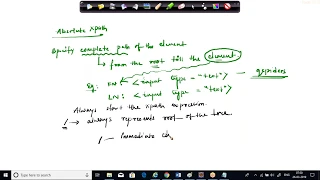 Absolute xpath
Specify complete path of the element
→ from the root till the element
Eg: FN ← <input type = "text"> — qspiders
LN: <input type = "text">
Always start the xpath expression.
/ → always represents root of the tree
/ — Immediate ch
Type here to search
07:56